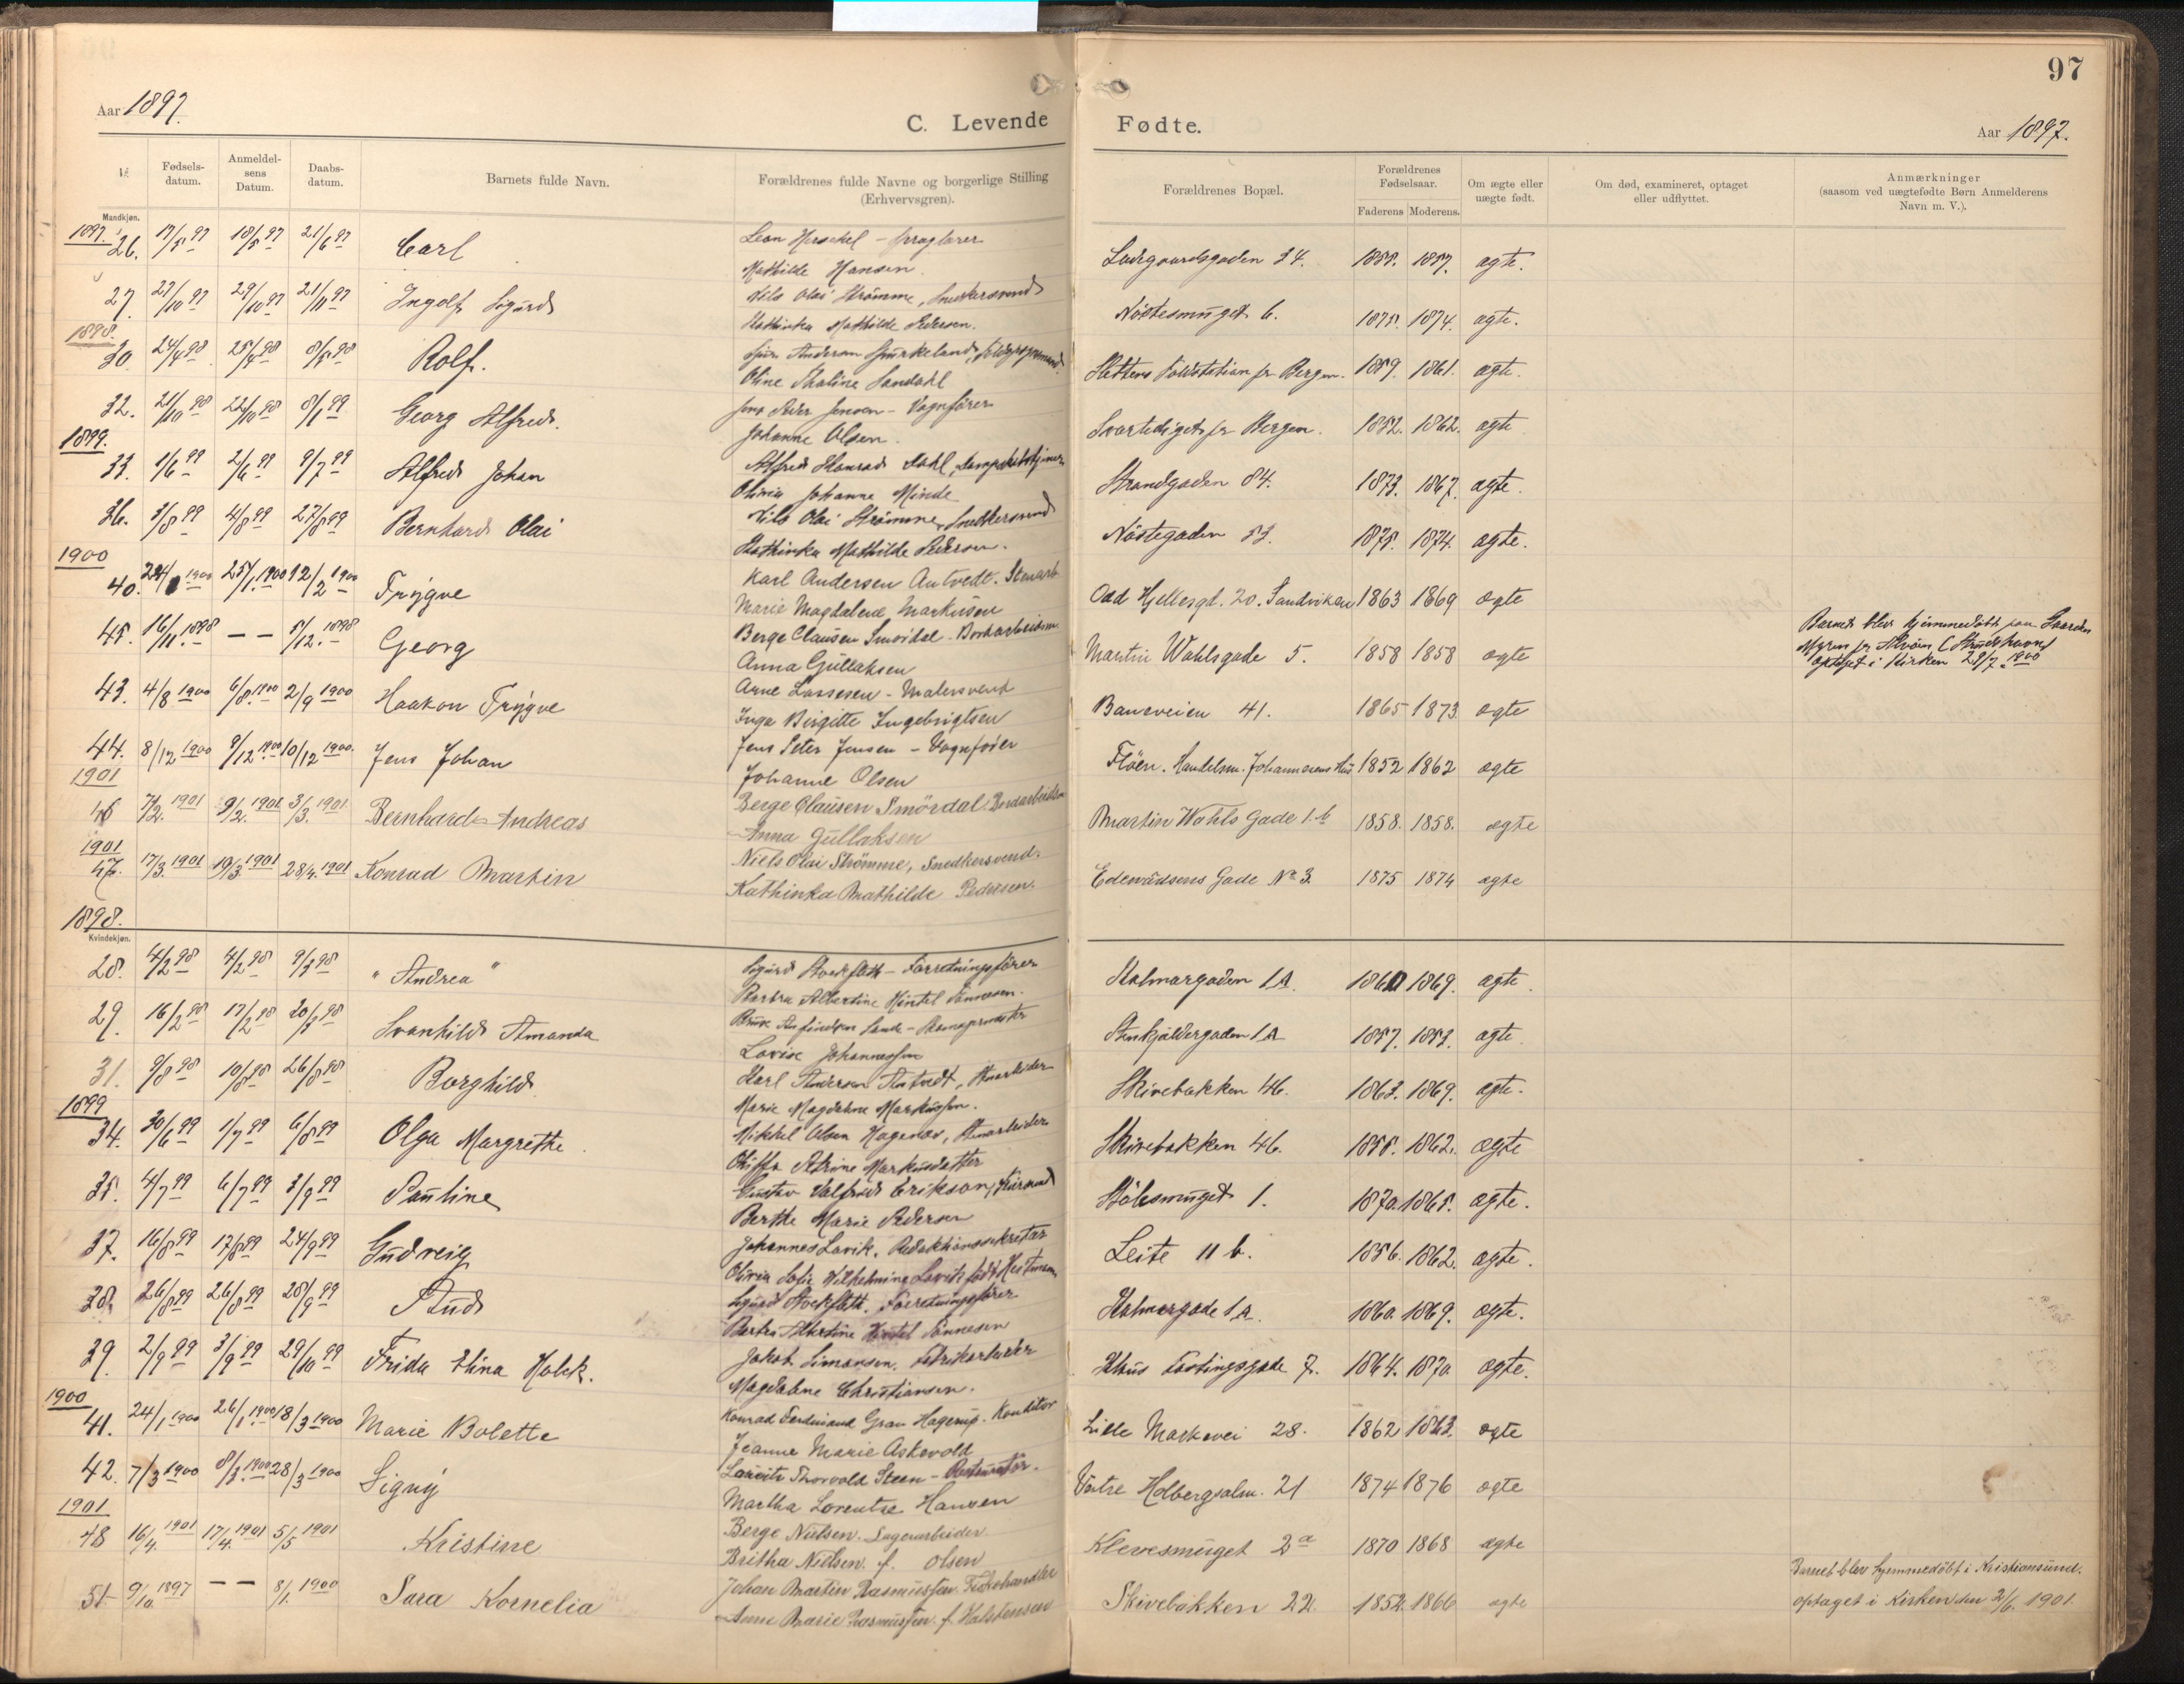 97
Aar 1897.
C. Levende Fødte.
Aar 1897.
№ Fødselsdatum. Anmeldelsens Datum. Daabsdatum. Barnets fulde Navn. Forældrenes fulde Navne og borgerlige Stilling (Erhvervsgren). Forældrenes Bopæl. Forældrenes Fødselsaar. Faderens Moderens. Om ægte eller uægte født. Om død, examineret, optaget eller udflyttet. Anmærkninger (saasom ved uægtefødte Børn Anmelderens Navn m. V.).
Mandkjøn.
1897.
26. 17/5 97 18/5 97 21/6 97 Carl Leon Herschel - Ladegaardsgaden 34. 1855. 1857. ægte.
Mathilde Hansen
27. 27/10 97 29/10 97 21/11 97 Ingolf Sigurd Nils Olai Strömme, Snedkersvend Nöstesmuget 6. 1875. 1874. ægte.
Kathinka Mathilde Pedersen.
1898.
30. 24/4 98 25/4 98 8/5 98 Rolf. Anderson Slettens Toldstation pr Bergen. 1859. 1861. ægte.
Oline Thaline Sandahl
32. 21/10 98 22/10 98 8/1 99 Georg Alfred. Jens Peder Jensen - Vognfører Svartediget pr Bergen. 1852. 1862. ægte
Johanne Olsen.
1899.
33. 1/6 99 2/6 99 9/7 99 Alfred Johan Alfred Konrad Dahl, Strandgaden 84. 1873. 1867. ægte.
Olivia Johanne Minde
36. 3/8 99 4/8 99 27/8 99 Bernhard Olai Nils Olai Strömme, Snedkersvend Nöstegaden 53. 1875. 1874. ægte.
Kathinka Mathilde Pedersen.
1900
40. 24/1 1900 25/1 1900 12/2 1900 Trygve Karl Andersen Antvedt. Stenarb Odd Hjellesgt. 20. Sandviken 1863 1869 ægte
Marie Magdalene Markusen
45. 16/11. 1898 — — 5/12. 1898 Georg Berge Clausen Smördal - Bordarbeidsm. Martin Wahlsgade 5. 1858 1858 ægte Barnet blev hjemmedöbt paa
Anna Gullaksen Myren pr Alvöen
optaget i Kirken 29/7. 1900
43. 4/8 1900 6/8. 1900 2/9 1900 Haakon Trygve Arne Lassesen - Malersvend Baneveien 41. 1865 1873 ægte
Inga Birgitte Ingebrigtsen
44. 8/12 1900 9/12 1900 10/12 1900. Jens Johan Jens Peter Jensen - Vognfører Flöen. Handelsm. Johannesens Hus 1852 1862 ægte
Johanne Olsen
1901
46 7/2. 1901 9/2. 1901 3/3. 1901 Bernhard Andreas Berge Clausen Smördal. Bordarbeidsm Martin Wahls Gade 1.b 1858. 1858. ægte
Anna Gullaksen
1901
47. 17/3. 1901 19/3. 1901 28/4. 1901 Konrad Martin Niels Olai Strömme, Snedkersvend. Edevardsens Gade No 3. 1875 1874 ægte
Kathinka Mathilde Pedersen.
1898.
Kvindekjøn.
28. 4/2 98 4/2 98 9/3 98 "Andrea" Sigurd Stockfleth - Forretningsfører Kalmargaden 1A. 1860 1869. ægte.
Barbra Albertine Hintel Tönnesen.
29. 16/2 98 17/2 98 20/3 98 Svanhild Amanda Stenkjeldergaden 1A 1857. 1853. ægte.
Lovise Johannessen
31. 9/8 98 10/8 98 26/8 98 Borghild. Karl Anderson Antvedt, Stenarbeider Skivebakken 46. 1863. 1869. ægte.
Marie Magdalene Markussen.
1899
34. 30/6 99 1/7 99 6/8 99 Olga Margrethe. Mikkel Olsen Hagenæs, Stenarbeider Skivebakken 46. 1855. 1862. ægte
Petrine Markusdatter
35. 4/7 99 6/7 99 3/9 99 Pauline Gustav Valfrid Erikson, Stölesmuget 1. 1870. 1865. ægte.
Berthe Marie Pedersen
37. 16/8 99 17/8 99 24/9 99 Gudveig Johannes Lavik. Redaktionssekretær Leite 11 b. 1856. 1862. ægte.
Olivia Sofie Vilhelmine Lavik født Hestmann
38. 26/8 99 26/8 99 28/9 99 Aud Sigurd Stockfleth. Forretningsfører Kalmargade 1A. 1860. 1869. ægte.
Barbra Albertine Hintel Tönnesen
39. 2/9 99 3/9 99 29/10 99 Frida Elina Holck. Jakob Simonsen. Fabrikarbeider Claus Fastingsgade 7. 1864. 1870. ægte.
Magdalene Christiansen.
1900
41. 24/1 1900 26/1. 1900 18/3 1900 Marie Bolette Konrad Ferdinand Gran Hagerup. Konditor Lille Markevei 28. 1862 1863. ægte
Jeanne Marie Askevold
42. 7/3 1900 8/3. 1900 28/3 1900 Signy Lauritz Thorvald Steen - Restauratör. Vestre Holbergsalm. 21 1874 1876 ægte
Martha Lorentse Hansen
1901.
48 16/4. 1901 17/4. 1901 5/5 1901 Kristine Berge Nielsen. Lagerarbeider Klevesmuget 2a 1870 1868 ægte
Britha Nielsen. f. Olsen
51 9/10. 1897 — — 8/1. 1900 Sara Kornelia Johan Martin Rasmussen. Fiskehandler Skivebakken 22. 1852. 1866 ægte Barnet blev hjemmedöbt i Kristiansund.
Anne Marie Rasmussen. f. Halstensen optaget i Kirken den 2/6. 1901.